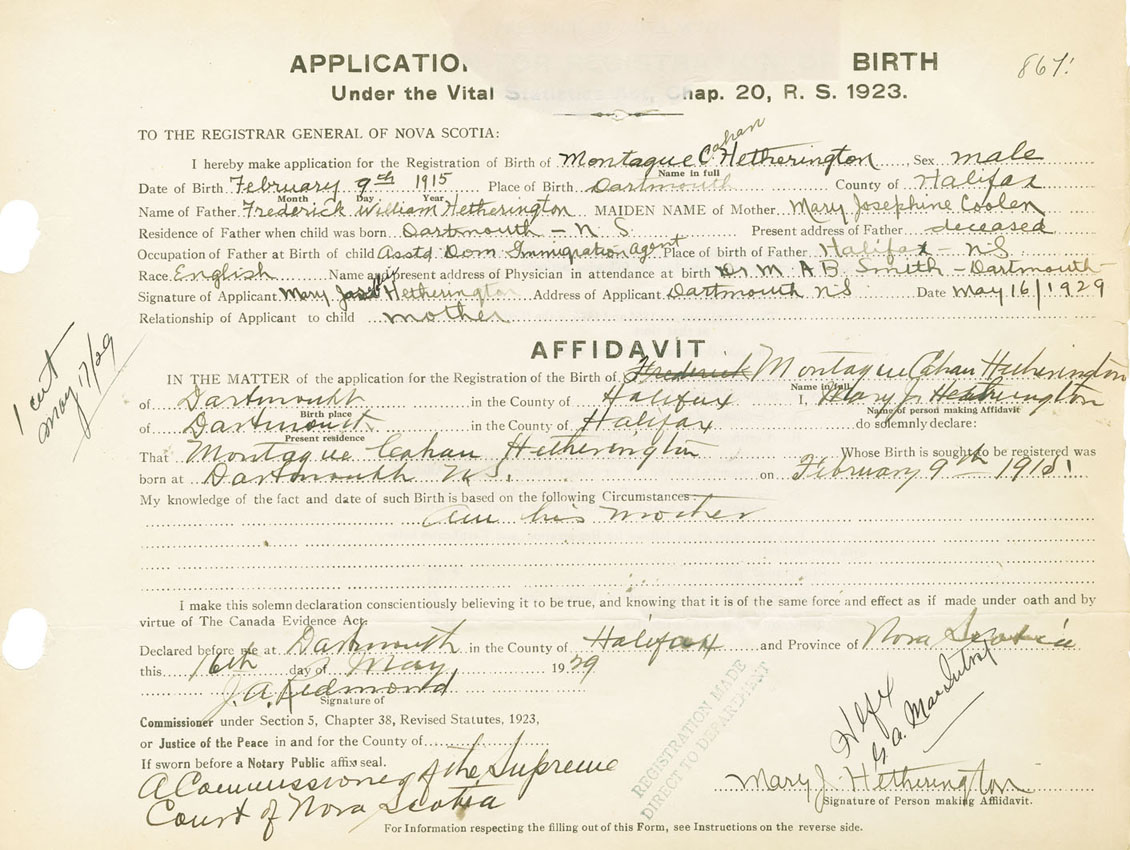 APPLICATION FOR REGISTRATION OF BIRTH
867.
Under the Vital Statistics Act, Chap. 20, R. S. 1923.
TO THE REGISTRAR GENERAL OF NOVA SCOTIA:
Cahan
I hereby make application for the Registration of Birth of Montague C. Hetherington, Sex male
Name in full
Date of Birth February 9th 1915 Place of Birth Dartmouth County of Halifax
Month Day Year
Name of Father Frederick William Hetherington MAIDEN NAME of Mother Mary Josephine Coolen
Residence of Father when child was born Dartmouth - N S. Present address of Father deceased
Occupation of Father at Birth of child Asstd Dom Immigration Agent Place of birth of Father Halifax - NS
Race English Name and present address of Physician in attendance at birth Dr. M. A B. Smith - Dartmouth
Signature of Applicant Mary Hetherington Address of Applicant Dartmouth NS Date May 16/1929
Relationship of Applicant to child mother
1 cert
May 17/29
AFFIDAVIT
IN THE MATTER of the application for the Registration of the Birth of Frederick Montague Cahan Hetherington
Name in full
of Dartmouth in the County of Halifax I, Mary J. Hetherington
Birth place Name of person making Affidavit
of Dartmouth in the County of Halifax do solemnly declare:
Present residence
That Montague Cahan Hetherington Whose Birth is sought to be registered was
born at Dartmouth N.S. on February 9th 1915.
My knowledge of the fact and date of such Birth is based on the following Circumstances:
Am his mother
I make this solemn declaration conscientiously believing it to be true, and knowing that it is of the same force and effect as if made under oath and by
virtue of The Canada Evidence Act.
Declared before me at Dartmouth in the County of Halifax and Province of Nova Scotia
this 16th day of May 1929
J. A. Redmond
Signature of
Commissioner under Section 5, Chapter 38, Revised Statutes, 1923,
or Justice of the Peace in and for the County of
If sworn before a Notary Public affix seal.
A Commissioner of the Supreme
Court of Nova Scotia
REGISTRATION MADE
DIRECT TO DEPARTMENT
Hlfx
Mary J. Hetherington
Signature of Person making Affidavit.
For Information respecting the filling out of this Form, see Instructions on the reverse side.